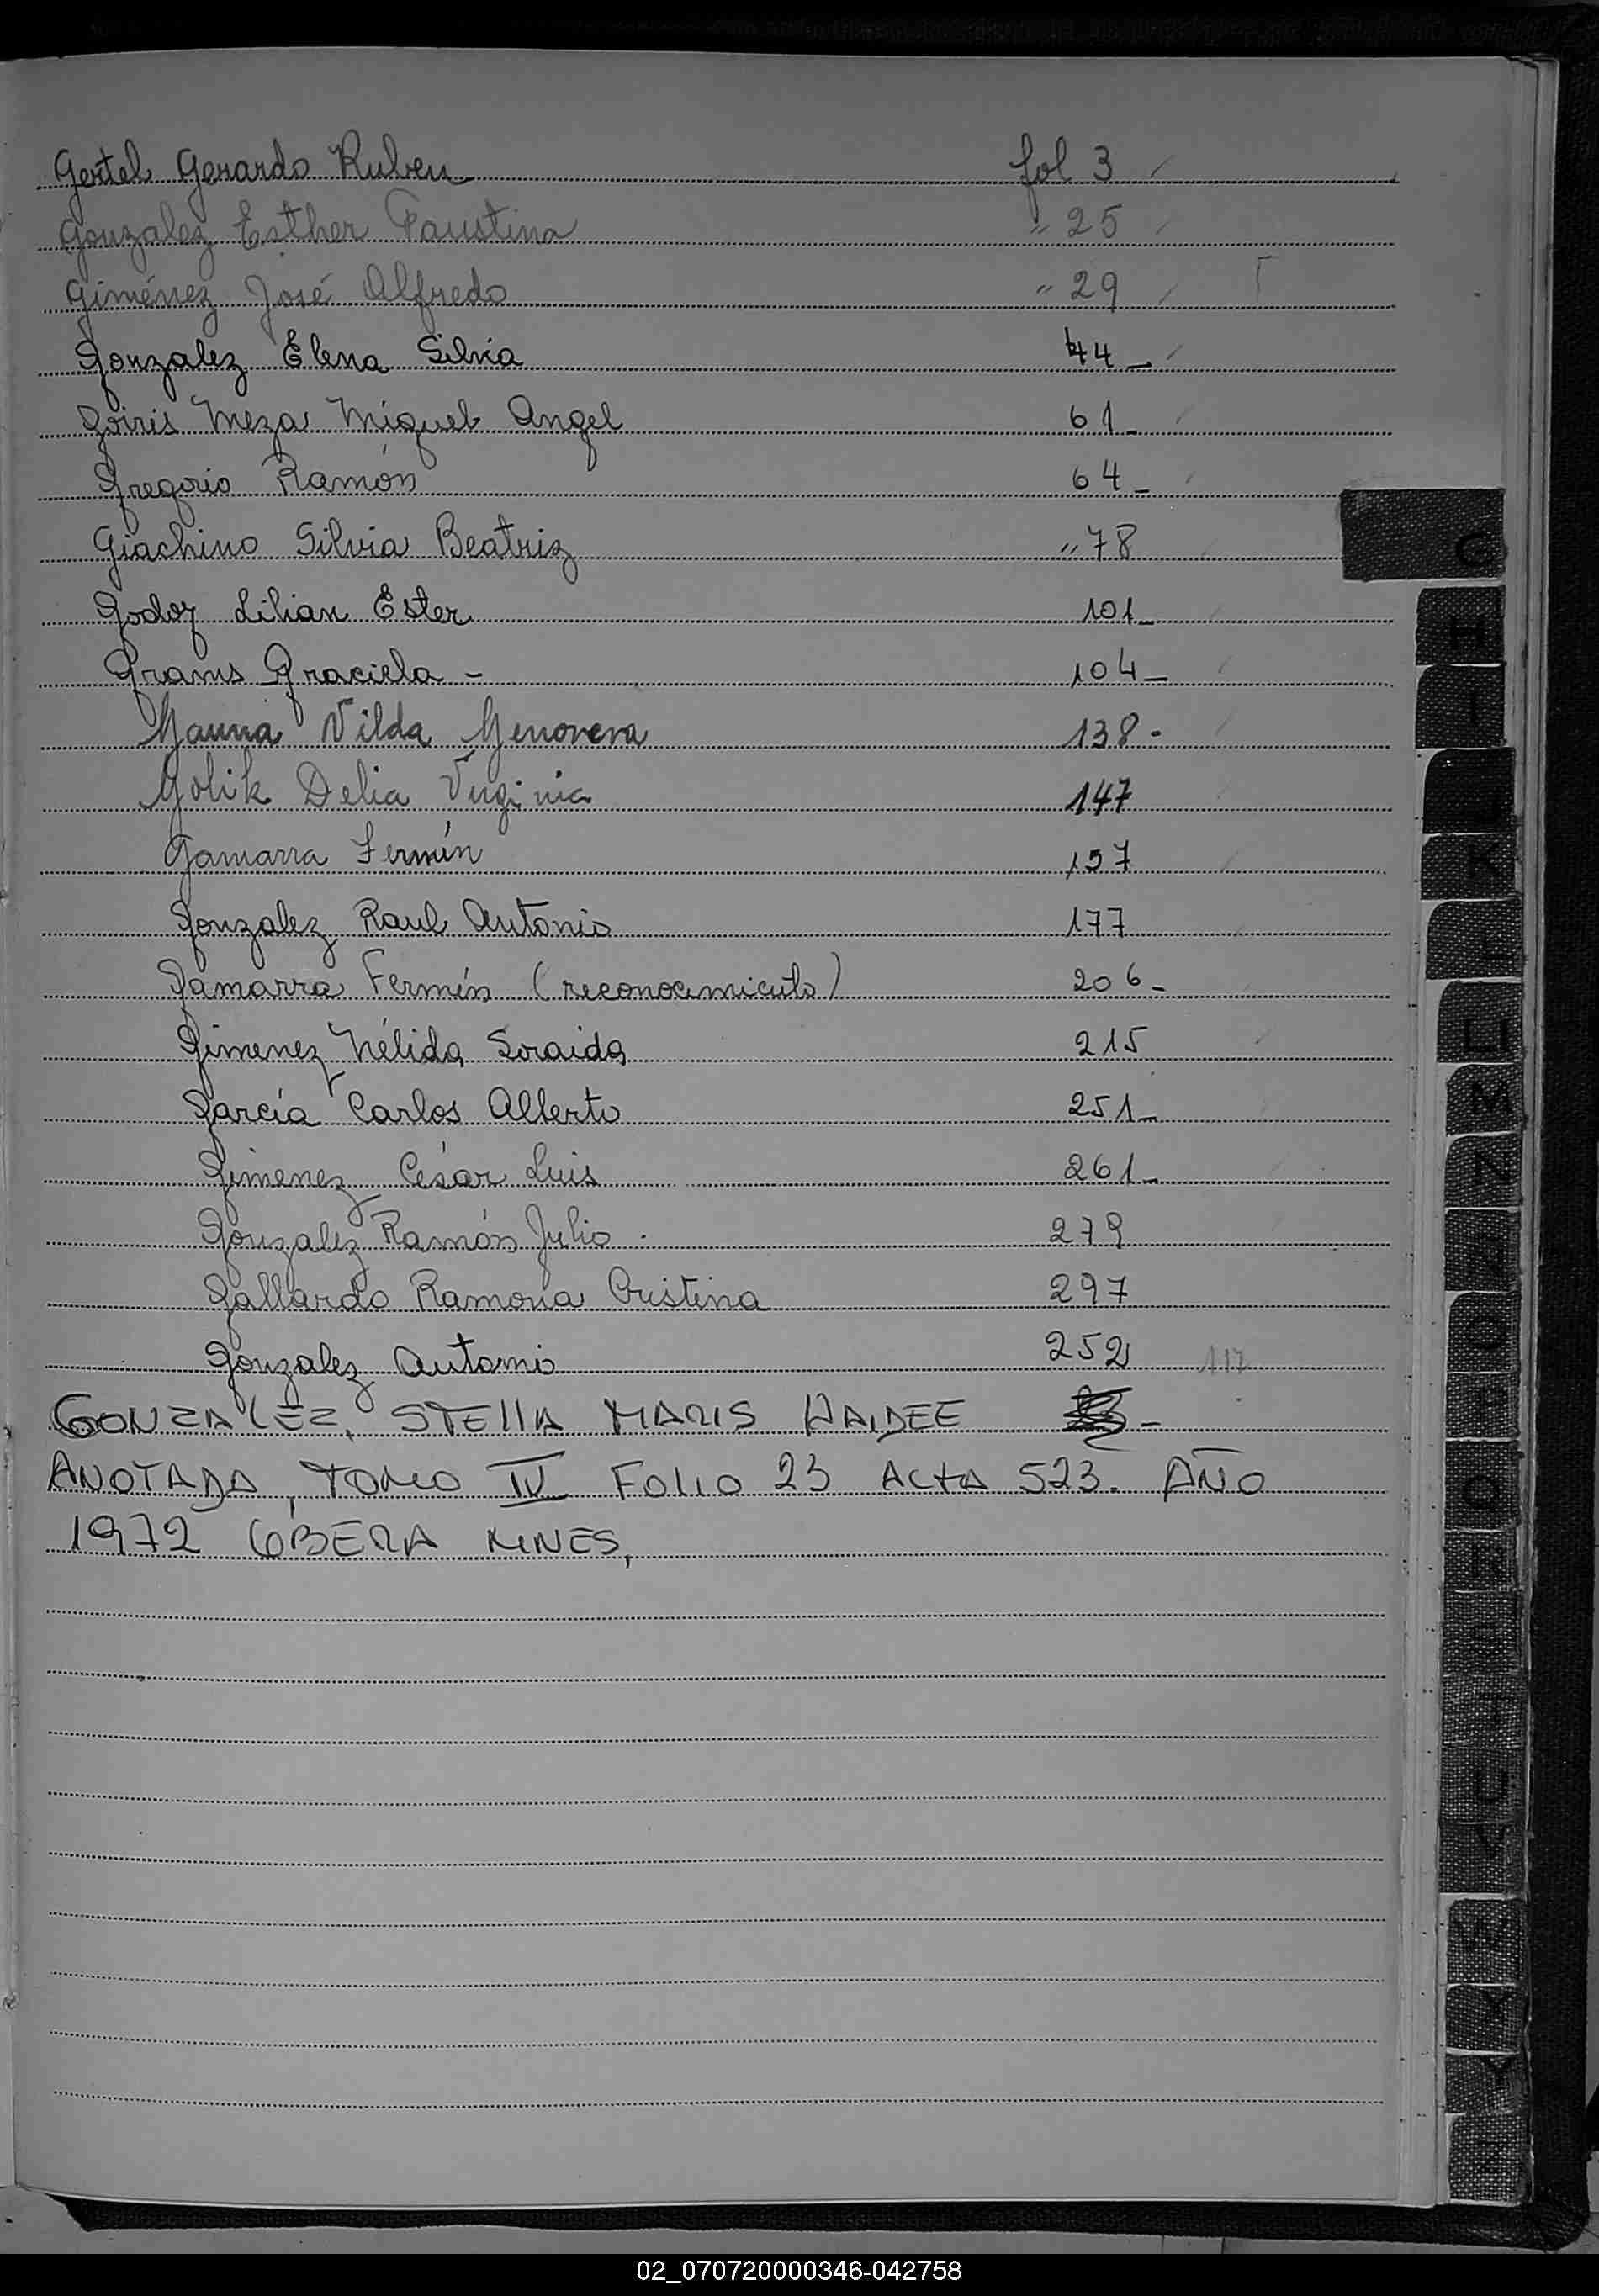 Gertel Gerardo Ruben fol 3
Gonzalez Esther Faustina " 25
Giménez José Alfredo " 29
Gonzalez Elena Silvia 44-
Goiris Meza Miguel Angel 61-
Gregorio Ramón 64-
Giachino Silvia Beatriz " 78
Godoy Lilian Ester 101-
Grams Graciela - 104-
Gauna Nilda Genoveva 138-
Golik Delia Virginia 147
Gamarra Fermín 157
Gonzalez Raul Antonio 177
Gamarra Fermín (reconocimiento) 206-
Gimenez Nélida Soraida 215
García Carlos Alberto 251-
Gimenez César Luis 261-
Gonzalez Ramón Julio. 279
Gallardo Ramona Cristina 297
Gonzalez Antonio 252 117
GONZALEZ, STELLA MARIS HAIDEE -
ANOTADA, TOMO IV FOLIO 23 ACTA 523. AÑO
1972 OBERA MNES,
G
H
I
J
K
L
Ll
M
N
Ñ
O
P
Q
R
S
T
U
V
W
X
Y
Z
02_070720000346-042758